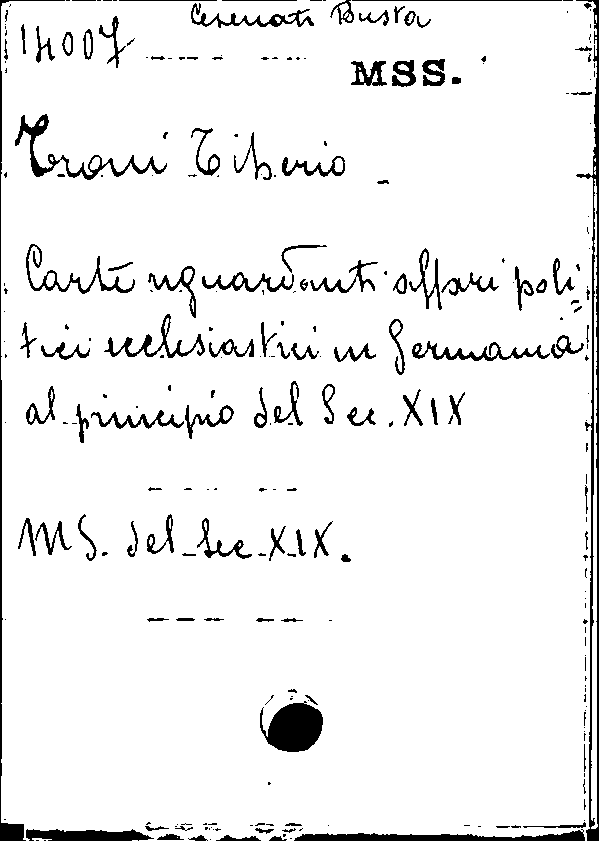 Cesenati Busta
14007
MSS.
Troni Tiberio
Carte riguardanti affari poli=
tici ecclesiastici in Germania
al principio del Sec. XIX
MS. del Sec XIX.